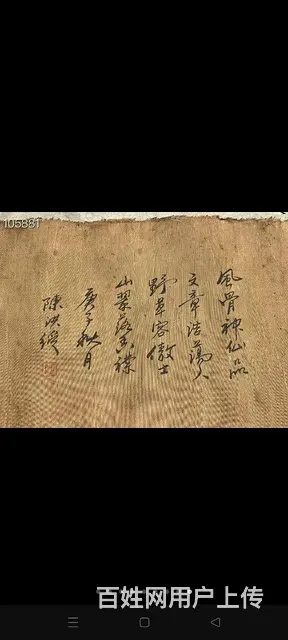 105881
風骨神仙品
文章浩蕩人
野草容傲士
山翠落
庚子秋月
陳洪綬
百姓网用户上传